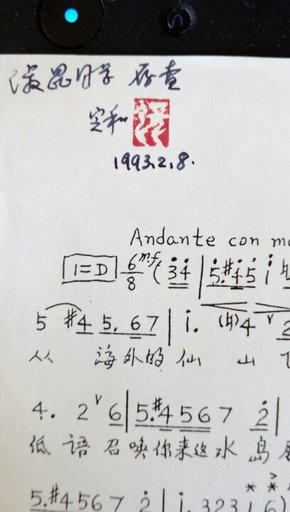 同学 存查
定和
1993.2.8.
Andante con m
1=D 6/8 mf (34 | 5.#45 i
5 #4 5. 67 | i. (♮)4 2
从 海外的仙 山 飞
4. 2 6 | 5#456 7 2 |
低 语 召唤你来这水 岛
5.#4567 2 | i.3231 6)